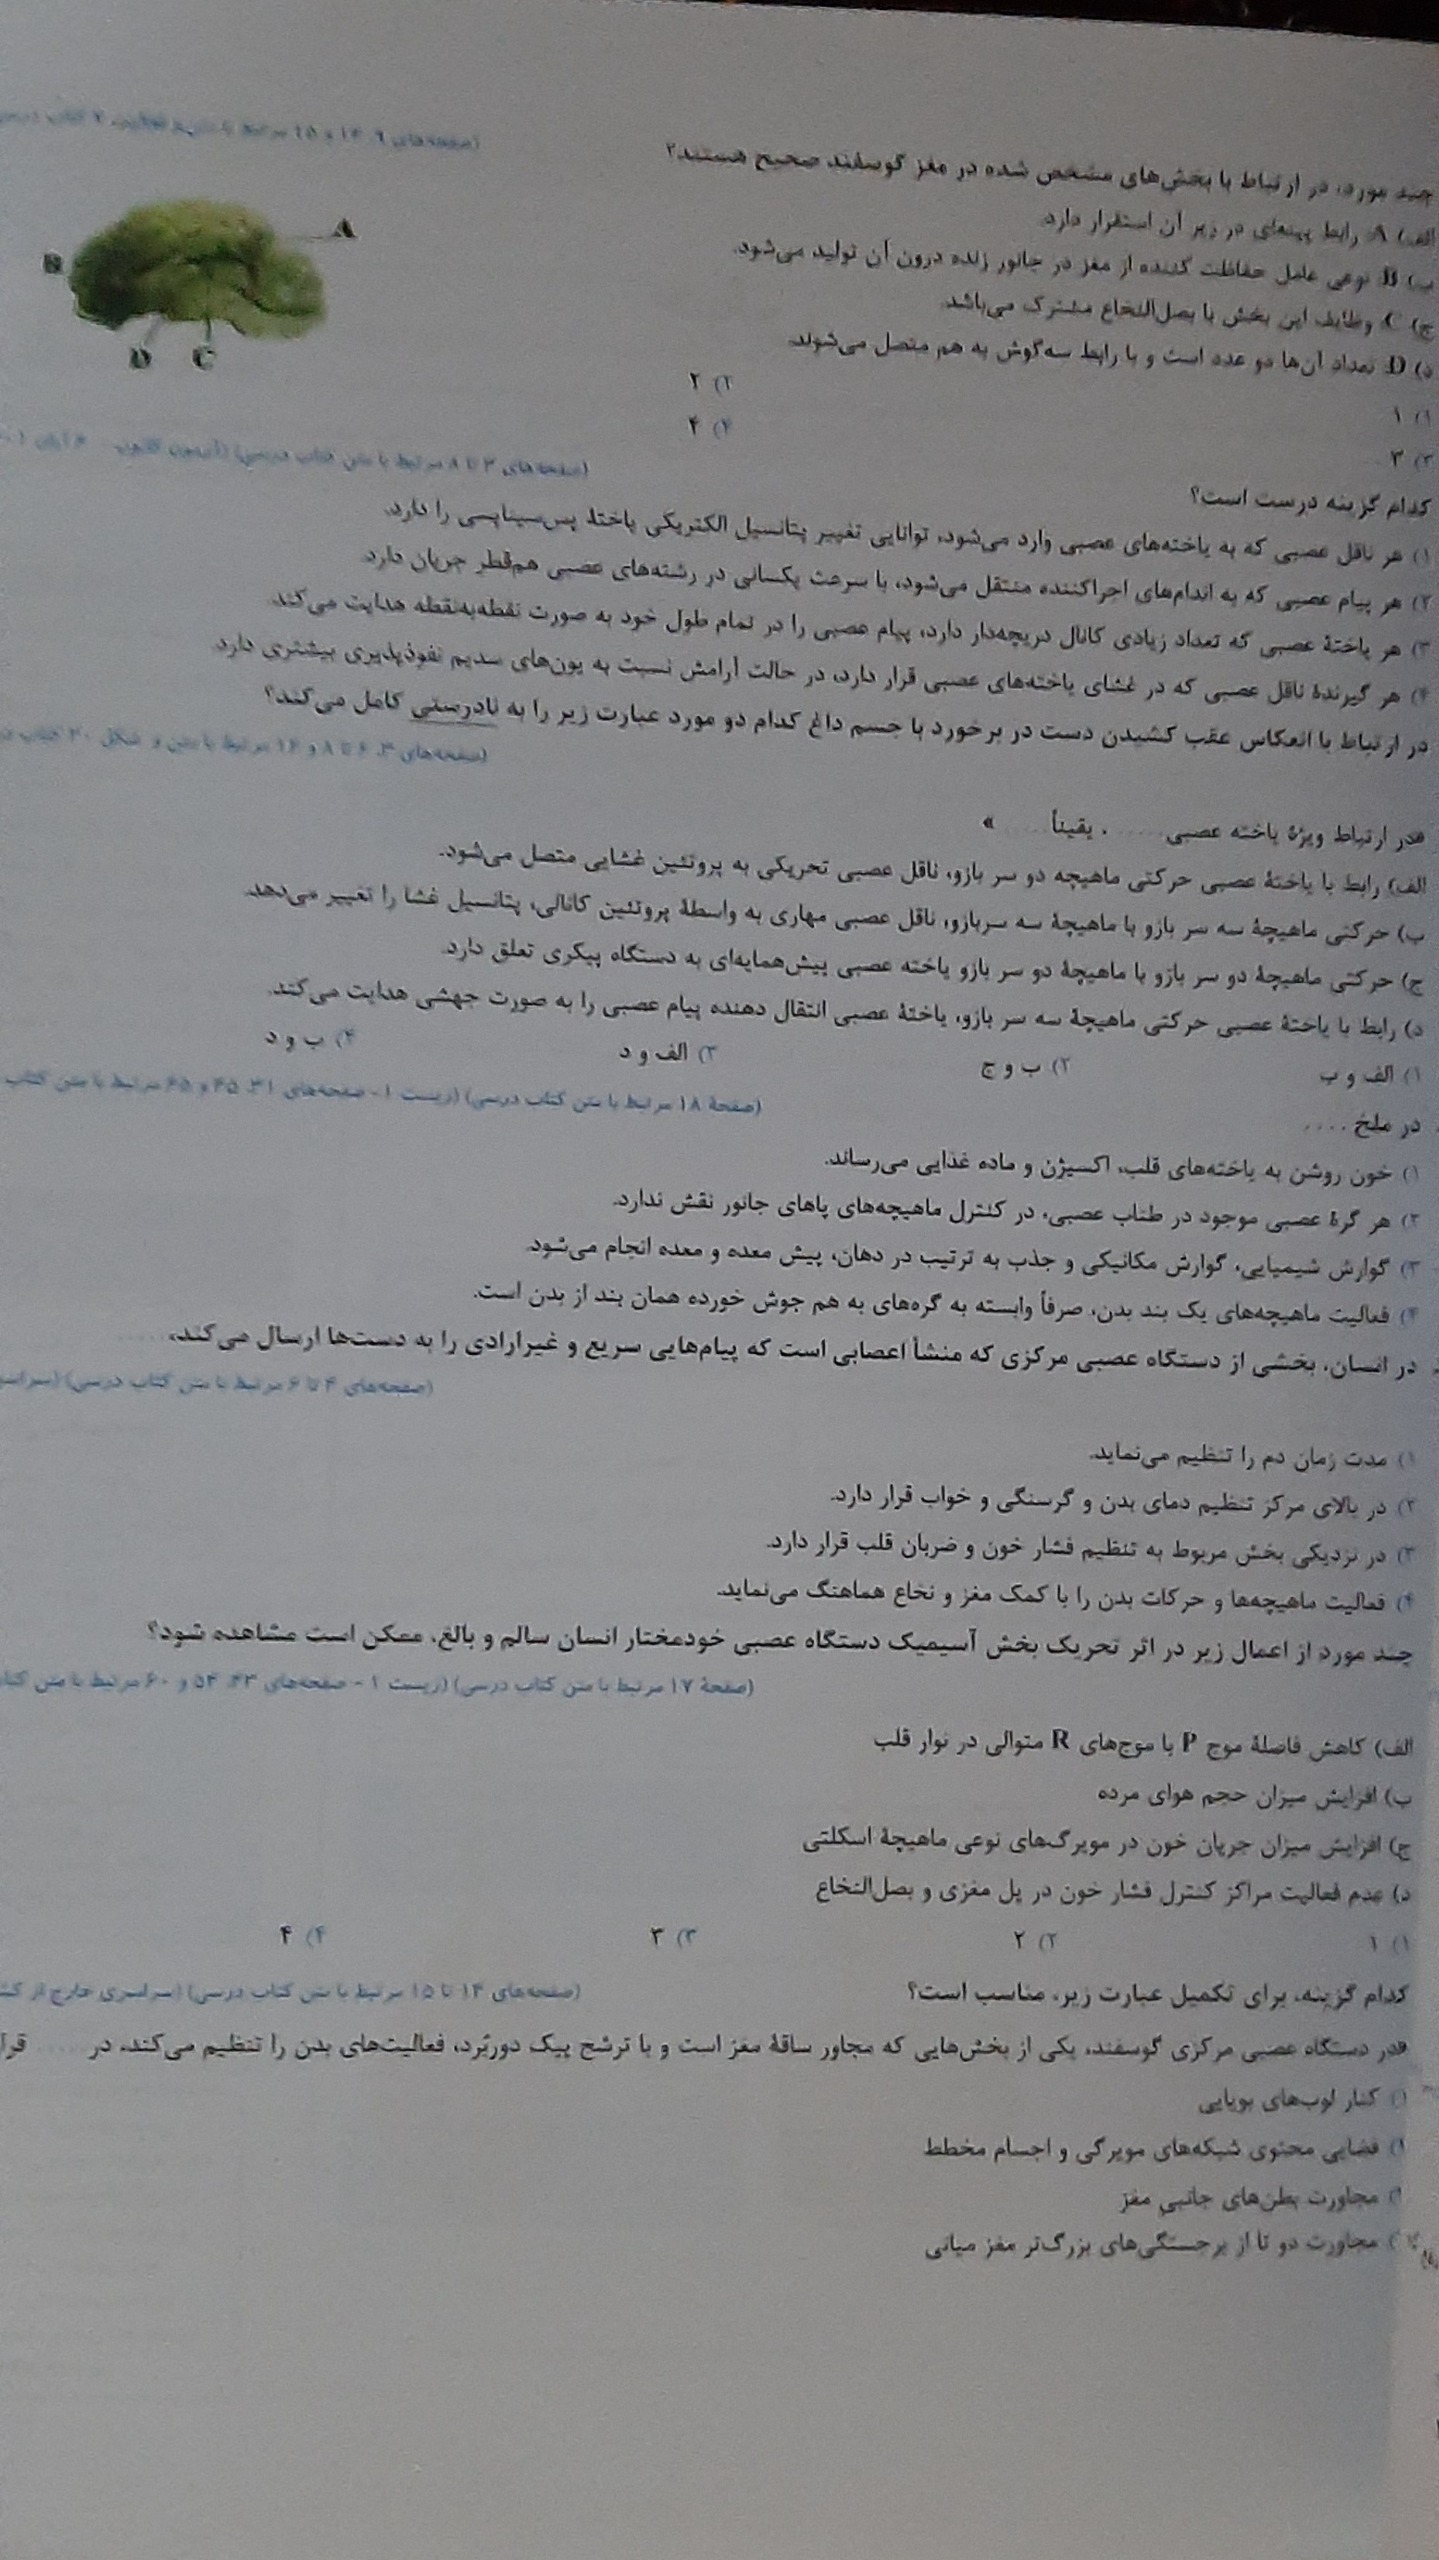 (صفحه‌های ۹، ۱۴ و ۱۵ مرتبط با
چند مورد، در ارتباط با بخش‌های مشخص شده در مغز گوسفند صحیح هستند؟
الف) A: رابط پینه‌ای در زیر آن استقرار دارد.
ب) B: نوعی عامل حفاظت کننده از مغز در جانور زنده درون آن تولید می‌شود.
ج) C: وظایف این بخش با بصل‌النخاع مشترک می‌باشد.
د) D: تعداد آن‌ها دو عدد است و با رابط سه‌گوش به هم متصل می‌شوند.
A
B
D C
۱) ۱
۲) ۲
۳) ۳
۴) ۴
(صفحه‌های ۳ تا ۸ مرتبط با متن کتاب درسی)
کدام گزینه درست است؟
۱) هر ناقل عصبی که به یاخته‌های عصبی وارد می‌شود، توانایی تغییر پتانسیل الکتریکی یاختهٔ پس‌سیناپسی را دارد.
۲) هر پیام عصبی که به اندام‌های اجراکننده منتقل می‌شود، با سرعت یکسانی در رشته‌های عصبی هم‌قطر جریان دارد.
۳) هر یاختهٔ عصبی که تعداد زیادی کانال دریچه‌دار دارد، پیام عصبی را در تمام طول خود به صورت نقطه‌به‌نقطه هدایت می‌کند.
۴) هر گیرندهٔ ناقل عصبی که در غشای یاخته‌های عصبی قرار دارد، در حالت آرامش نسبت به یون‌های سدیم نفوذپذیری بیشتری دارد.
در ارتباط با انعکاس عقب کشیدن دست در برخورد با جسم داغ کدام دو مورد عبارت زیر را به نادرستی کامل می‌کند؟
(صفحه‌های ۳، ۶ تا ۸ و ۱۶ مرتبط با متن و شکل ۲۰ کتاب
«در ارتباط ویژهٔ یاخته عصبی ...... ، یقیناً ...... »
الف) رابط با یاختهٔ عصبی حرکتی ماهیچه دو سر بازو، ناقل عصبی تحریکی به پروتئین غشایی متصل می‌شود.
ب) حرکتی ماهیچهٔ سه سر بازو با ماهیچهٔ سه سربازو، ناقل عصبی مهاری به واسطهٔ پروتئین کانالی، پتانسیل غشا را تغییر می‌دهد.
ج) حرکتی ماهیچهٔ دو سر بازو با ماهیچهٔ دو سر بازو یاخته عصبی پیش‌همایه‌ای به دستگاه پیکری تعلق دارد.
د) رابط با یاختهٔ عصبی حرکتی ماهیچهٔ سه سر بازو، یاختهٔ عصبی انتقال دهنده پیام عصبی را به صورت جهشی هدایت می‌کند.
۱) الف و ب ۲) ب و ج ۳) الف و د ۴) ب و د
(صفحهٔ ۱۸ مرتبط با متن کتاب درسی) (زیست ۱ - صفحه‌های ۳۱، ۴۵ و ۶۵ مرتبط با متن کتاب
در ملخ ....
۱) خون روشن به یاخته‌های قلب، اکسیژن و ماده غذایی می‌رساند.
۲) هر گرهٔ عصبی موجود در طناب عصبی، در کنترل ماهیچه‌های پاهای جانور نقش ندارد.
۳) گوارش شیمیایی، گوارش مکانیکی و جذب به ترتیب در دهان، پیش معده و معده انجام می‌شود.
۴) فعالیت ماهیچه‌های یک بند بدن، صرفاً وابسته به گره‌های به هم جوش خورده همان بند از بدن است.
در انسان، بخشی از دستگاه عصبی مرکزی که منشأ اعصابی است که پیام‌هایی سریع و غیرارادی را به دست‌ها ارسال می‌کند، ......
(صفحه‌های ۴ تا ۶ مرتبط با متن کتاب درسی)
۱) مدت زمان دم را تنظیم می‌نماید.
۲) در بالای مرکز تنظیم دمای بدن و گرسنگی و خواب قرار دارد.
۳) در نزدیکی بخش مربوط به تنظیم فشار خون و ضربان قلب قرار دارد.
۴) فعالیت ماهیچه‌ها و حرکات بدن را با کمک مغز و نخاع هماهنگ می‌نماید.
چند مورد از اعمال زیر در اثر تحریک بخش آسیمیک دستگاه عصبی خودمختار انسان سالم و بالغ، ممکن است مشاهده شود؟
(صفحهٔ ۱۷ مرتبط با متن کتاب درسی) (زیست ۱ - صفحه‌های ۴۳، ۵۴ و ۶۰ مرتبط با متن
الف) کاهش فاصلهٔ موج P با موج‌های R متوالی در نوار قلب
ب) افزایش میزان حجم هوای مرده
ج) افزایش میزان جریان خون در مویرگ‌های نوعی ماهیچهٔ اسکلتی
د) عدم فعالیت مراکز کنترل فشار خون در پل مغزی و بصل‌النخاع
۱) ۱ ۲) ۲ ۳) ۳ ۴) ۴
کدام گزینه، برای تکمیل عبارت زیر، مناسب است؟
(صفحه‌های ۱۴ تا ۱۵ مرتبط با متن کتاب درسی) (سراسری خارج از
«در دستگاه عصبی مرکزی گوسفند، یکی از بخش‌هایی که مجاور ساقهٔ مغز است و با ترشح پیک دوربُرد، فعالیت‌های بدن را تنظیم می‌کند، در ......
۱) کنار لوب‌های بویایی
فضایی محتوی شبکه‌های مویرگی و اجسام مخطط
مجاورت بطن‌های جانبی مغز
مجاورت دو تا از برجستگی‌های بزرگ‌تر مغز میانی